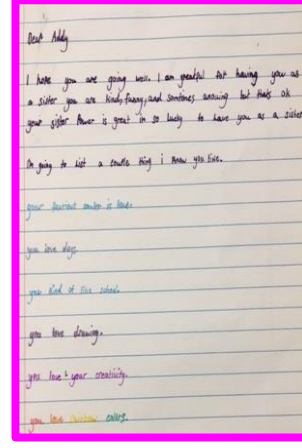 Dear Addy
I hope you are going well. I am greatful for having you as
a sister you are kind, funny, and somtimes anoying but thats ok
your sister Power is great im so lucky to have you as a sister
Im going to list a couple thing i know you live.
your favriout number is four.
you love dogs
you kind of live school.
you love drawing.
you love your creativity.
you love rainbow colors.